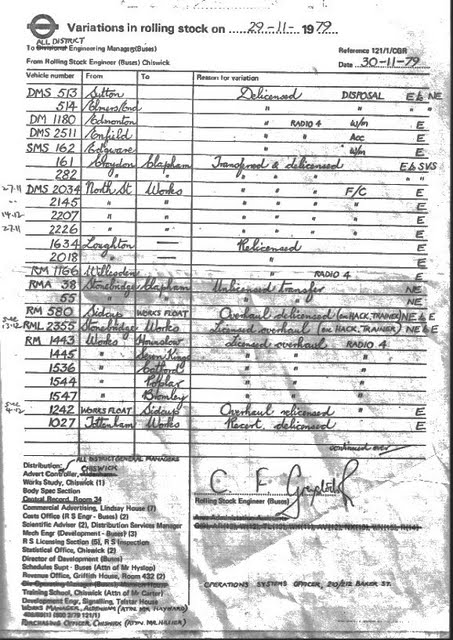 Variations in rolling stock on 29-11- 1979
ALL DISTRICT
To Divisional Engineering Managers(Buses)
Reference 121/1/CGR
From Rolling Stock Engineer (Buses) Chiswick
Date 30-11-79
Vehicle number From To Reason for variation
DMS 513 Sutton Delicensed DISPOSAL E & NE
514 Elmers End " " " "
DM 1180 Edmonton " RADIO 4 W/m E
DMS 2511 Enfield " Acc E
SMS 162 Edgware " W/m E
161 Croydon Clapham Transferred & delicensed E & SVS
282 " " " " " " "
27.11 DMS 2034 North St Works " " " F/C E
" 2145 " " " " " " E
14.12 2207 " " " " " " E
27.11 2226 " " " " " " E
1634 Loughton — Relicensed E
2018 " — " E
RM 1166 Willesden " RADIO 4 E
RMA 38 Stonebridge Clapham Unlicensed transfer NE
55 " " " " NE
RM 580 Sidcup WORKS FLOAT Overhaul delicensed (ex HACK, TRAINER) NE & E
due 13.12 RML 2355 Stonebridge Works Licensed overhaul (ex HACK, TRAINER) NE & E
RM 1443 Works Hounslow Licensed overhaul RADIO 4 E
1445 " Seven Kings " " E
1536 " Catford " " E
1544 " Poplar " " E
1547 " Bromley " " E
due 4.12 1242 WORKS FLOAT Sidcup Overhaul relicensed " E
1027 Tottenham Works Recert. delicensed " E
continued over
Distribution: ALL DISTRICT GENERAL MANAGERS
CHISWICK
Advert Controller,
Works Study, Chiswick (1)
Body Spec Section
Central Record, Room 34
Commercial Advertising, Lindsay House (7)
Costs Office (R S Engr - Buses) (2)
Scientific Adviser (2), Distribution Services Manager
Mech Engr (Development - Buses) (3)
R S Licensing Section (6), R S Inspection
Statistical Office, Chiswick (2)
Director of Development (Buses)
Schedules Supt - Buses (Attn of Mr Hyslop)
Revenue Office, Griffith House, Room 432 (2)
Training School, Chiswick (Attn of Mr Carter)
Development Engr, Signalling, Telstar House
WORKS MANAGER, ALDENHAM (ATTN. MR HAYWARD)
PURCHASING OFFICER, CHISWICK (ATTN. MR HILLIER)
Rolling Stock Engineer (Buses)
OPERATIONS SYSTEMS OFFICER, 210/212 BAKER ST.